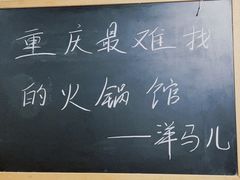 重庆最难找
的火锅馆
——洋马儿